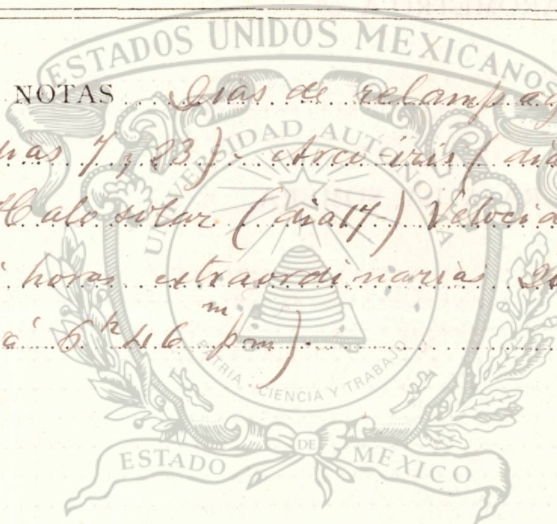 ESTADOS UNIDOS MEXICANOS
NOTAS Dias de relampag
ias 7 y 23). Arco iris (di
Halo solar (dia 17) Velocid
horas extraordinarias
á 6h 46m pm).
UNIVERSIDAD AUTÓNOMA
PATRIA · CIENCIA Y TRABAJO
ESTADO DE MEXICO